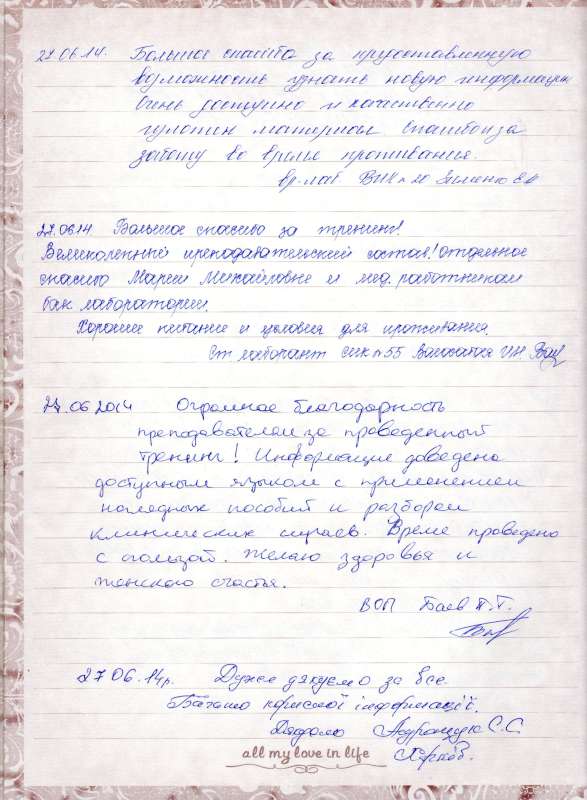 27.06.14. Большое спасибо за предоставленную
возможность узнать новую информацию
Очень доступно и качественно
материал. Спасибо за
заботу во время проживания.
вр-лаб
27.0614 Большое спасибо за тренинг!
Великолепный преподавательский состав! Отдельное
спасибо Марии Михайловне и мед. работникам
бак лаборатории.
Хорошие питание и условия для проживания.
Ст лаборант №55 И.Н.
27.06 2014 Огромное благодарность
преподавателям за проведенный
тренинг! Информация доведена
доступным языком с применением
наглядных пособий и разбором
клинических случаев. Время проведено
с пользой. Желаю здоровья и
женского счастья.
ВОП Баев П.Г.
27 06.14р. Дуже дякуємо за все
Багато корисної інформації.
С.С.
Харків.
all my love in life